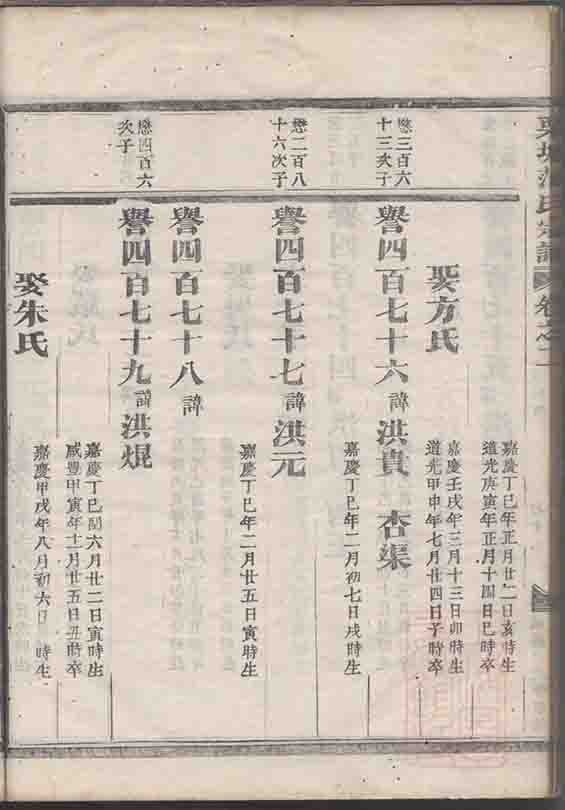 氏宗譜 卷之二
嘉慶丁巳年正月廿二日亥時生
道光庚寅年正月十四日巳時卒
娶方氏
嘉慶壬戌年三月十三日卯時生
道光甲申年七月廿四日子時卒
懋三百六十三次子
譽四百七十六諱洪貴 杏渠
嘉慶丁巳年二月初七日戌時生
懋二百八十六次子
譽四百七十七諱洪元
嘉慶丁巳年二月廿五日寅時生
譽四百七十八諱
懋四百六次子
譽四百七十九諱洪焜
嘉慶丁巳閏六月廿二日寅時生
咸豐甲寅年十一月廿五日丑時卒
娶朱氏
嘉慶甲戌年八月初六日 時生